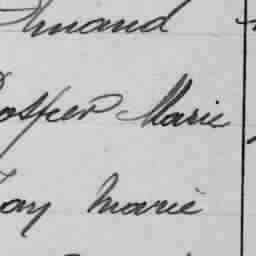 Amand
osper Marie
ay Marie